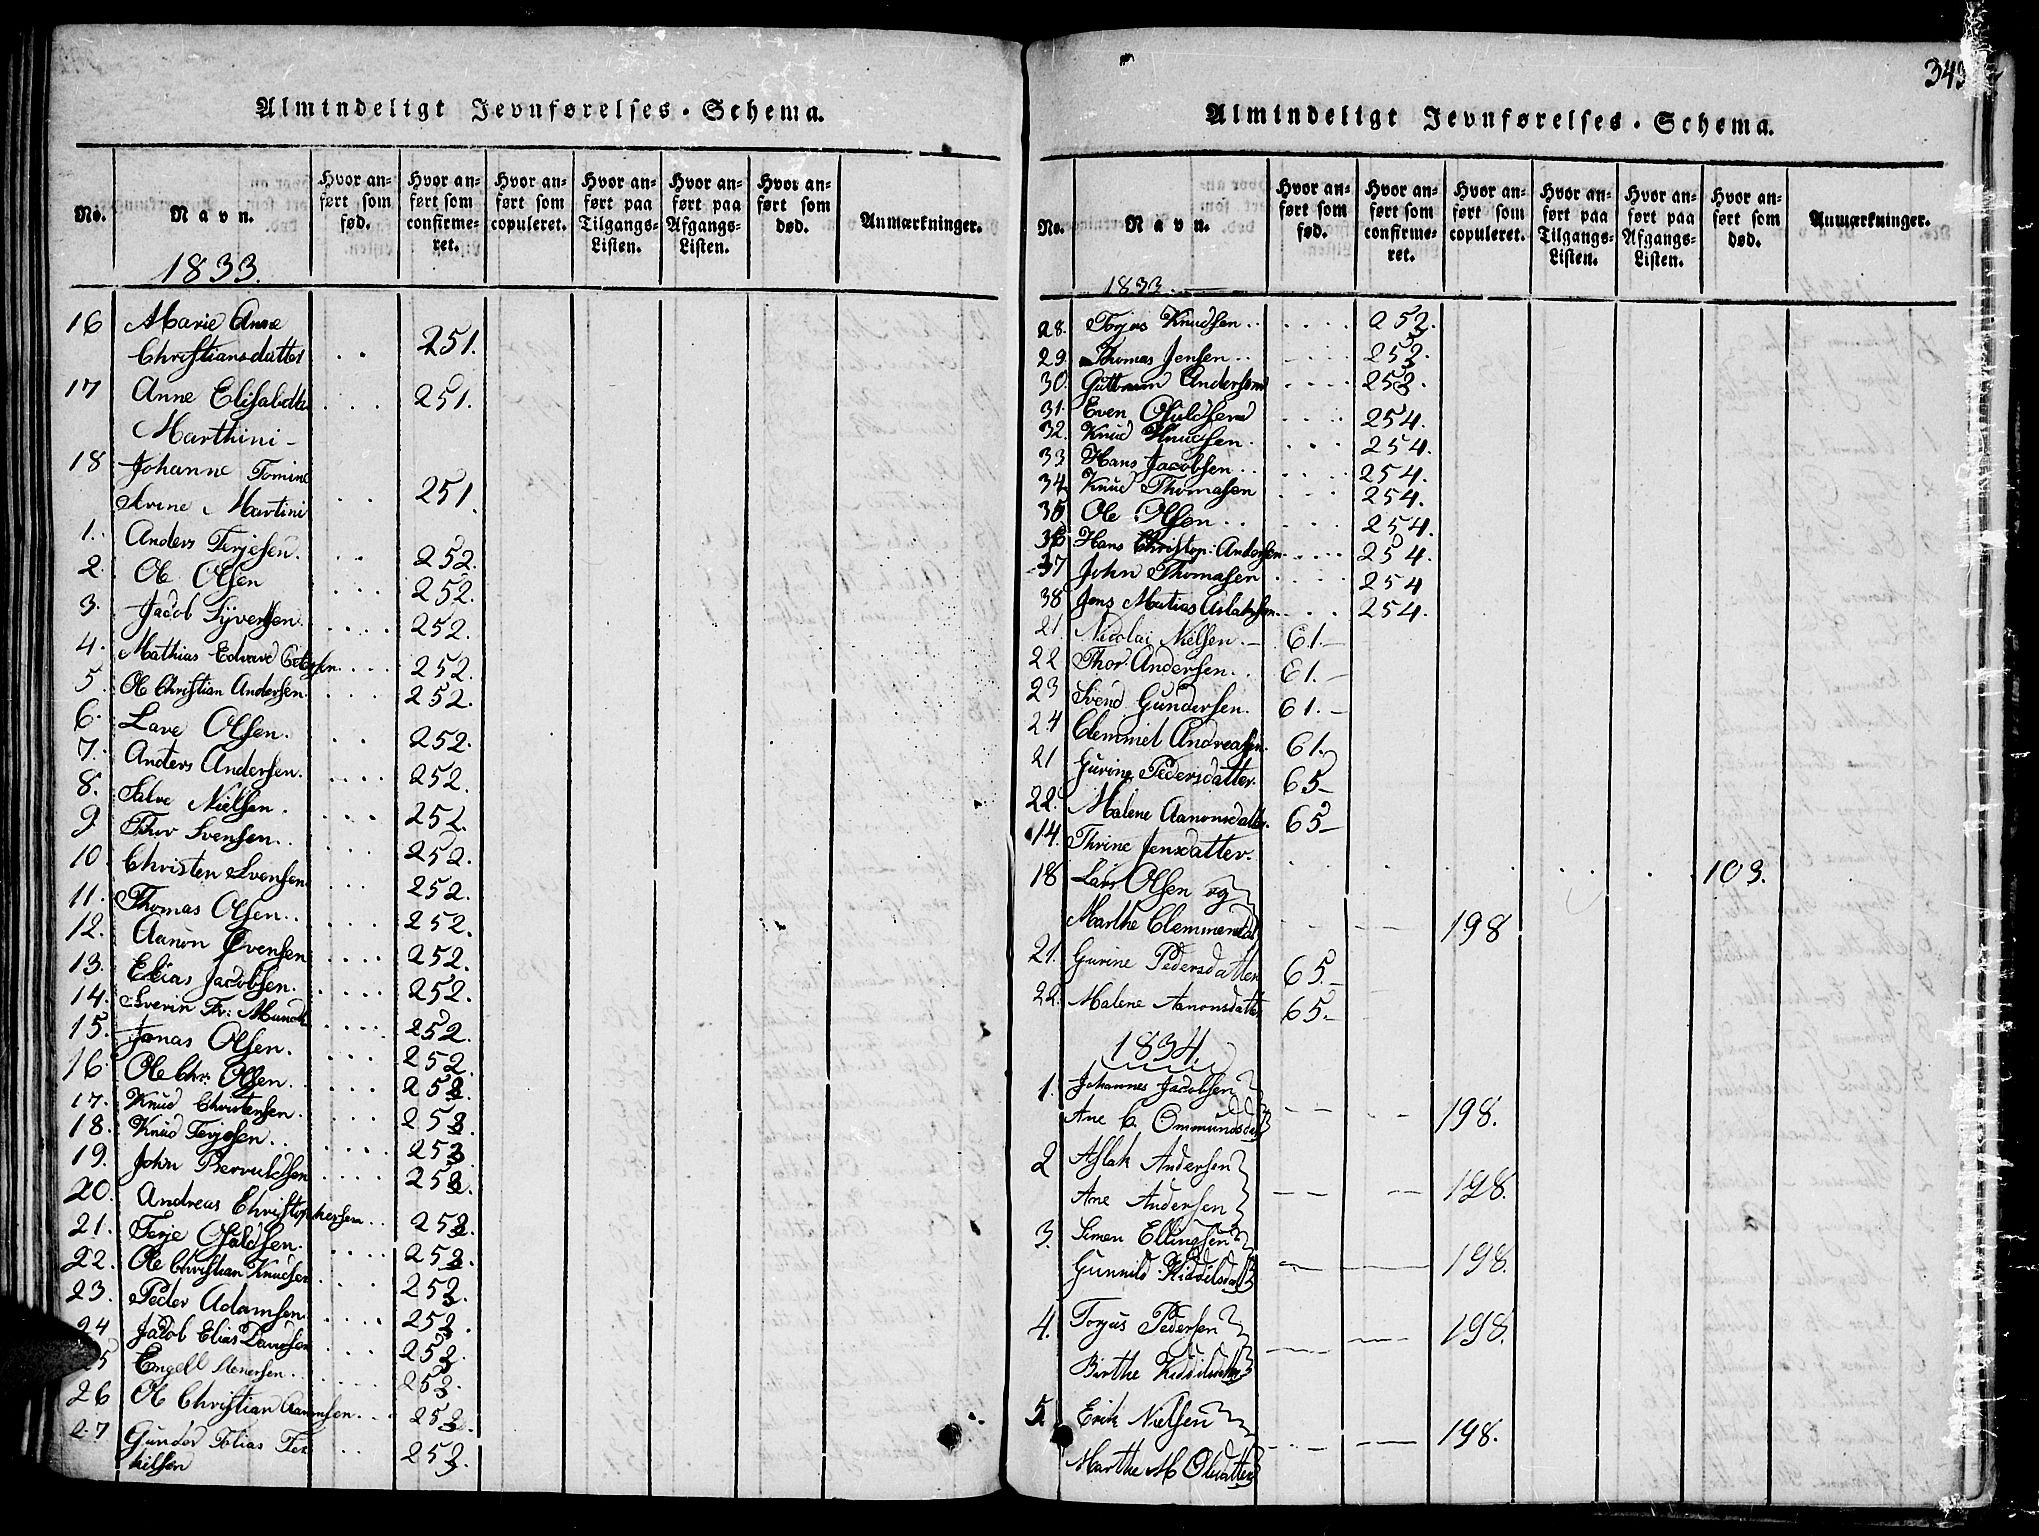 Almindeligt Jevnførelses-Schema.
No. Navn. Hvor anført som fød. Hvor anført som confirmeret. Hvor anført som copuleret. Hvor anført paa Tilgangs-Listen. Hvor anført paa Afgangs-Listen. Hvor anført som død. Anmærkninger.
1833.
16 Marie Anne
Christiansdatter . . 251.
17 Anne Elisabeth . . . 251.
Marthini -
18 Johanne Tomine
Martini . . 251.
1. Anders Terjesen . . 252.
2. Ole Olsen . . . 252.
3. Jacob Syvertsen . . . . 252.
4. Mathias Edvard . . . . 252.
5. Ole Christian Andersen . . . . 252.
6. Lave Olsen. . . . 252.
7. Anders Andersen. . . . . 252.
8. Salve Nielsen. . . . 252.
9. Thor Svensen. . . . 252.
10. Christen Svensen . . . 252.
11. Thomas Olsen . . . . 252.
12. Aanon Evensen . . . . 252.
13. Elias Jacobsen. . . . . 252.
14. Sverin Fr: . . . . 252.
15. Jonas Olsen. . . . 252.
16. Ole Chr: Olsen . . . . 253.
17. Knud Christensen . . . . 253.
18. Knud Terjesen . . . . . 253
19. John Bervuldsen . . . . 253.
20. Andreas Christophersen . . 253.
21. Terje Olsen. . . . . 253.
22. Ole Christian Knudsen . . . . 253.
23. Peder Adamsen. . . . . 253.
24 Jacob Elias Davidsen . . . 253.
25 Engell . . . . 253.
26 Ole Christian Aanonsen . . . 253.
27 Gunder Tobias Ter
kilsen . . 253.
343
Almindeligt Jevnførelses-Schema.
No. Navn. Hvor anført som fød. Hvor anført som confirmeret. Hvor anført som copuleret. Hvor anført paa Tilgangs-Listen. Hvor anført paa Afgangs-Listen. Hvor anført som død. Anmærkninger.
1833.
28. Torjus Knudsen . . . . . 253.
29. Thomas Jensen . . . . . 253.
30. Guttorm Andersen . . . . 253.
31. Even . . . . 254.
32. Knud Knudsen. . . . 254.
33 Hans Jacobsen . . . . . 254.
34 Knud Thomasen . . . 254.
35 Ole Olsen . . . . . . 254.
36 Hans Christop: Andersen . . . . 254.
37 John Thomasen . . . . 254
38 Jens Matias Aslaksen . . . 254.
21 Nicolai Nielsen. - 61.-
22 Thor Andersen . . 61. -
23 Svend Gundersen. 61. -
24 Clemmet Andreasen. 61.
21 Gurine Pedersdatter. 65-
22. Malene Aanonsdatter. 65-
14. Thrine Jensdatter. . . . . . 103.
18 Lars Olsen og
Marthe Clemmensdat 198
21. Gurine Pedersdatter 65.-
22. Malene Aanonsdatter 65.-
1834.
1. Johannes Jacobsen
Ane C. Ommundsdat 198.
2 Aslak Andersen
Ane Andersen 198.
3. Simen Ellingsen
Gunnild Kiddelsdat 198.
4. Torjus Pedersen 198.
Birthe Kiddelsdat
5. Erik Nielsen 198.
Marthe M Olsdatter